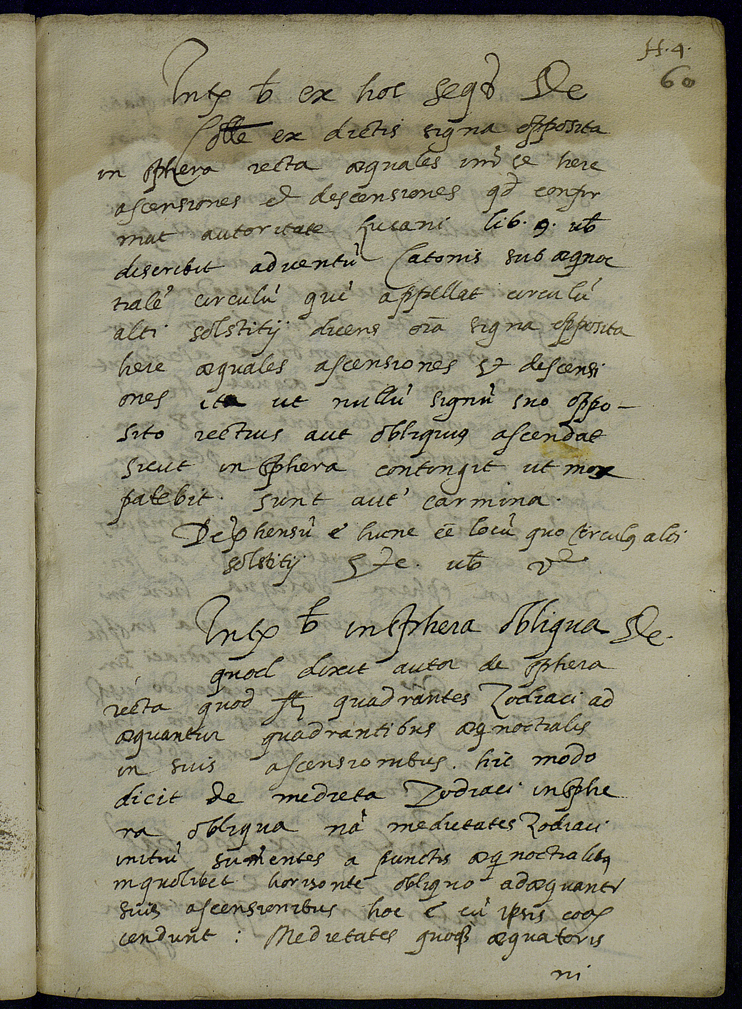 H. 4.
60
ex hoc &c
ex dictis signa opposita
in sphera recta æquales here
ascensiones et descensiones qd confir
mat autoritate Lucani lib. 9. ub̄
describit adventū Catonis sub æqnoc
tialē circulū quē appellat circulū
alti solstitij dicens oīa signa opposita
here æquales ascensiones et descensi
ones ita ut nullū signū suo oppo-
sito rectius aut obliquius ascendat
sicut in sphera contingit ut mox
patebit. Sunt autē carmina.
Deprhensū ē hunc eē locū quo Circulus alti
solstitij &c. ub̄
in sphera obliqua &c.
quod dixit autor de sphera
recta quod quadrantes Zodiaci ad
æquantur quadrantibus æqnoctialis
in suis ascensionibus. hic modo
dicit de medieta Zodiaci in sphe
ra obliqua nā medietates Zodiaci
initiū sumentes a punctis æqnoctialibus
in quolibet horisonte obliquo adæquantr
suis ascensionibus hoc ē cū ipsis
cendunt : Medietates quoqз æquatoris
ni